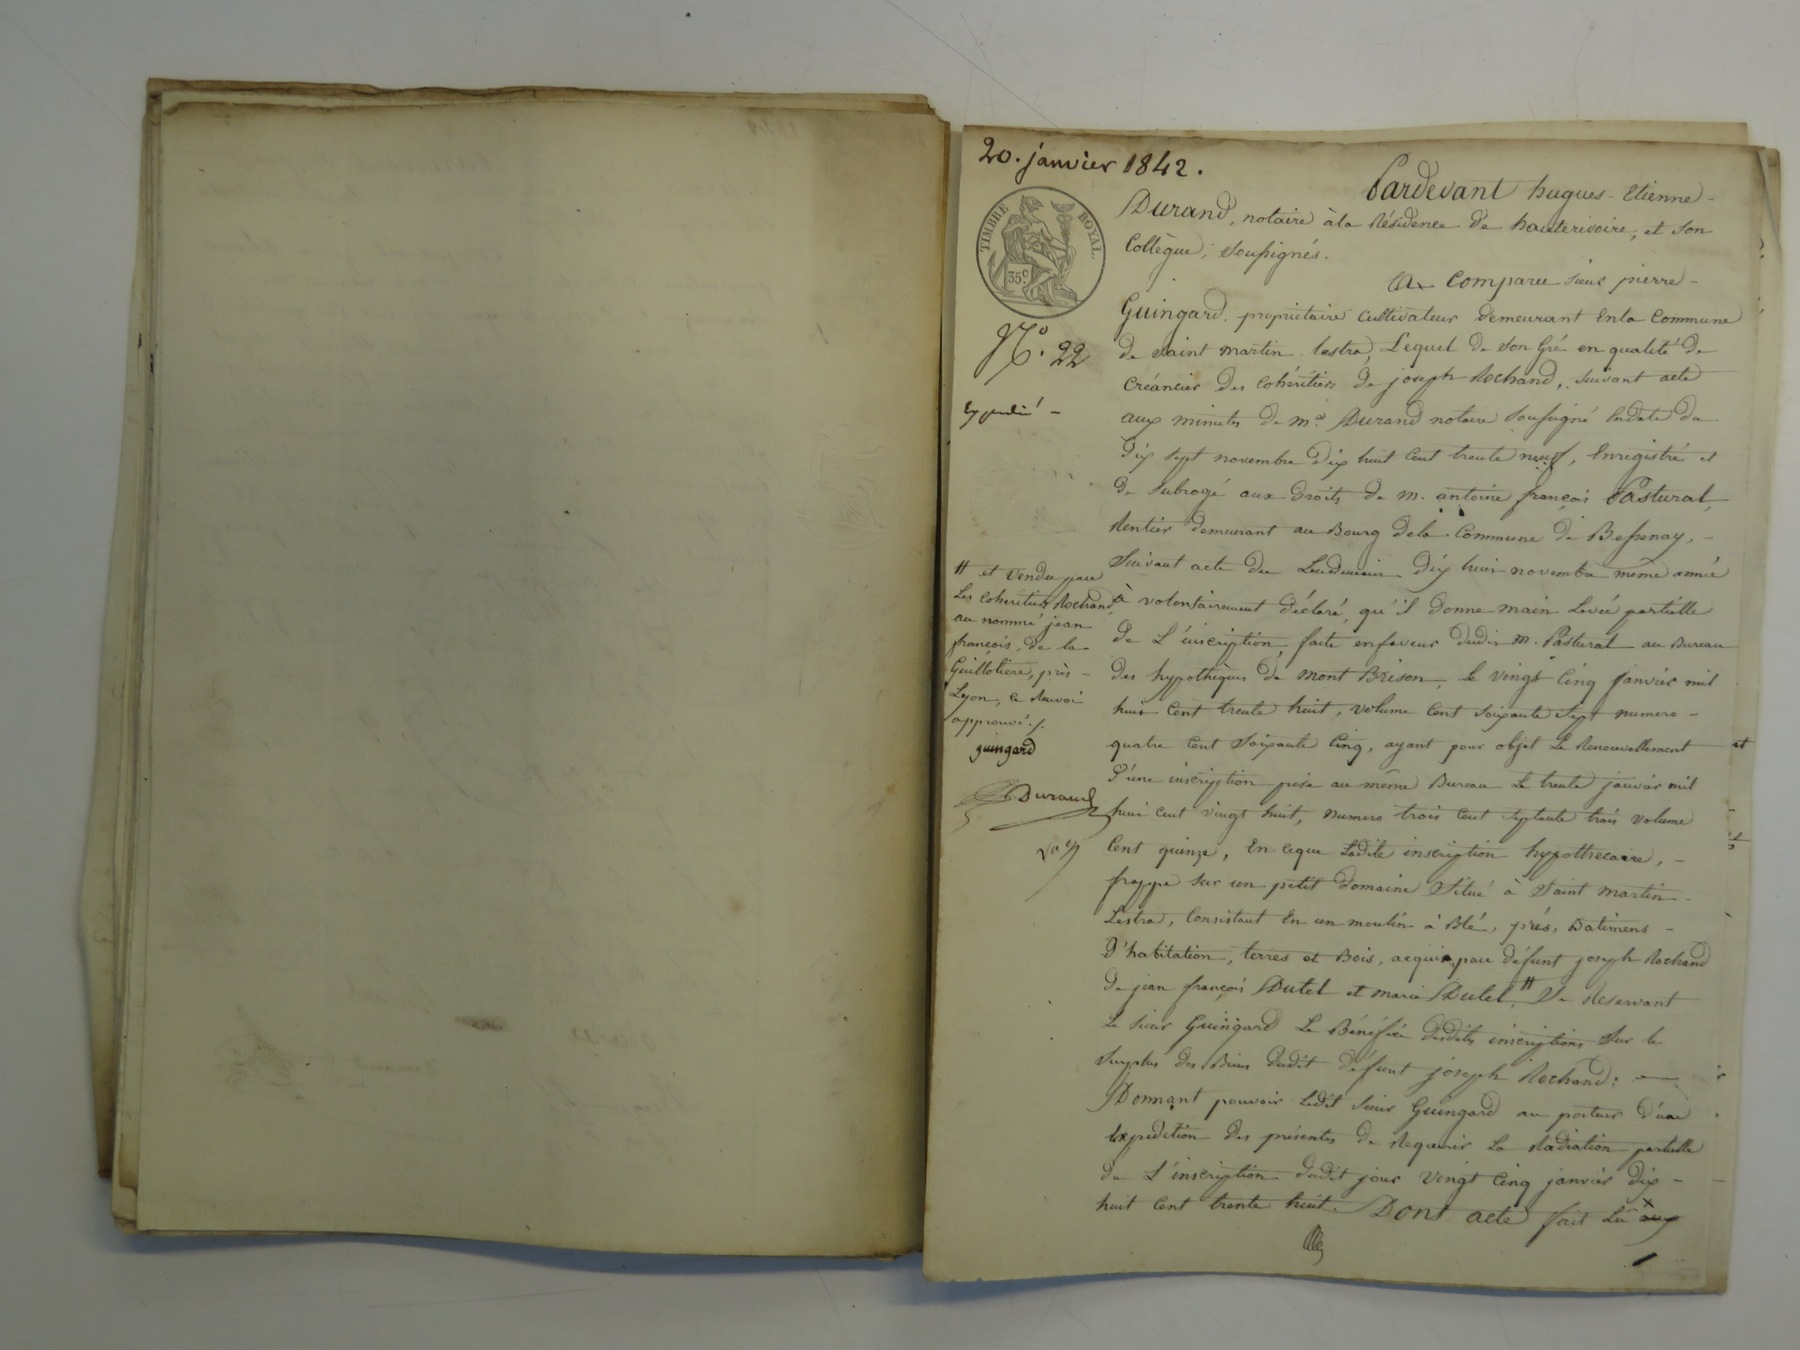 20. janvier 1842.
TIMBRE ROYAL.
35 c.
N.o 22
Expédié -
Pardevant hugues - Etienne -
Durand, notaire à la Résidence de hauterivoire, et son
Collègue, soussignés.
A Comparu sieur pierre -
Guingard, propriétaire cultivateur demeurant en la Commune
de saint martin lestra, Lequel de son Gré en qualité de
Créancier des cohéritiers de joseph Rochand, suivant acte
aux minutes de m.e Durand notaire soussigné en date du
dix sept novembre dix huit cent trente neuf, Enregistré et
de subrogé aux droits de m. antoine françois Pastural,
Rentier demeurant au Bourg dela Commune de Bessenay, -
suivant acte du Lendemain dix huit novembre meme année
à volontairement déclaré, qu'il donne main Levée partielle
de L'inscription faite en faveur dudit m. Pastural au Bureau
des hypothèques de Mont Brison, le vingt Cinq janvier mil
huit Cent trente huit, volume Cent soixante sept numero -
quatre Cent soixante Cinq, ayant pour objet Le Renouvellement
d'une inscription prise au même Bureau Le trente janvier mil
huit cent vingt huit, numero trois cent septante trois volume
Cent quinze, En ceque Ladite inscription hypothecaire, -
frappe sur un petit domaine situé à saint martin -
Lestra, Consistant En un moulin à Blé, prés, Batimens -
d'habitation, terres et Bois, acquis par défunt joseph Rochand
de jean françois Dutel et marie Dutel, # Se Reservant
Le sieur Guingard Le Bénéfice desdites inscriptions sur le
surplus des Biens dudit défunt joseph Rochand; -
Donnant pouvoir Ledit sieur Guingard au porteur d'une
Expedition des présentes de Requerir La Radiation partielle
de L'inscription dudit jour vingt Cinq janvier dix -
huit Cent trente huit. Dont acte fait Lu aux
# et Vendu par
Les Coheritiers Rochand,
au nommé jean
françois, de la
Guillotiere, près -
Lyon, ce Renvoi
approuvé ./.
guingard
Durand